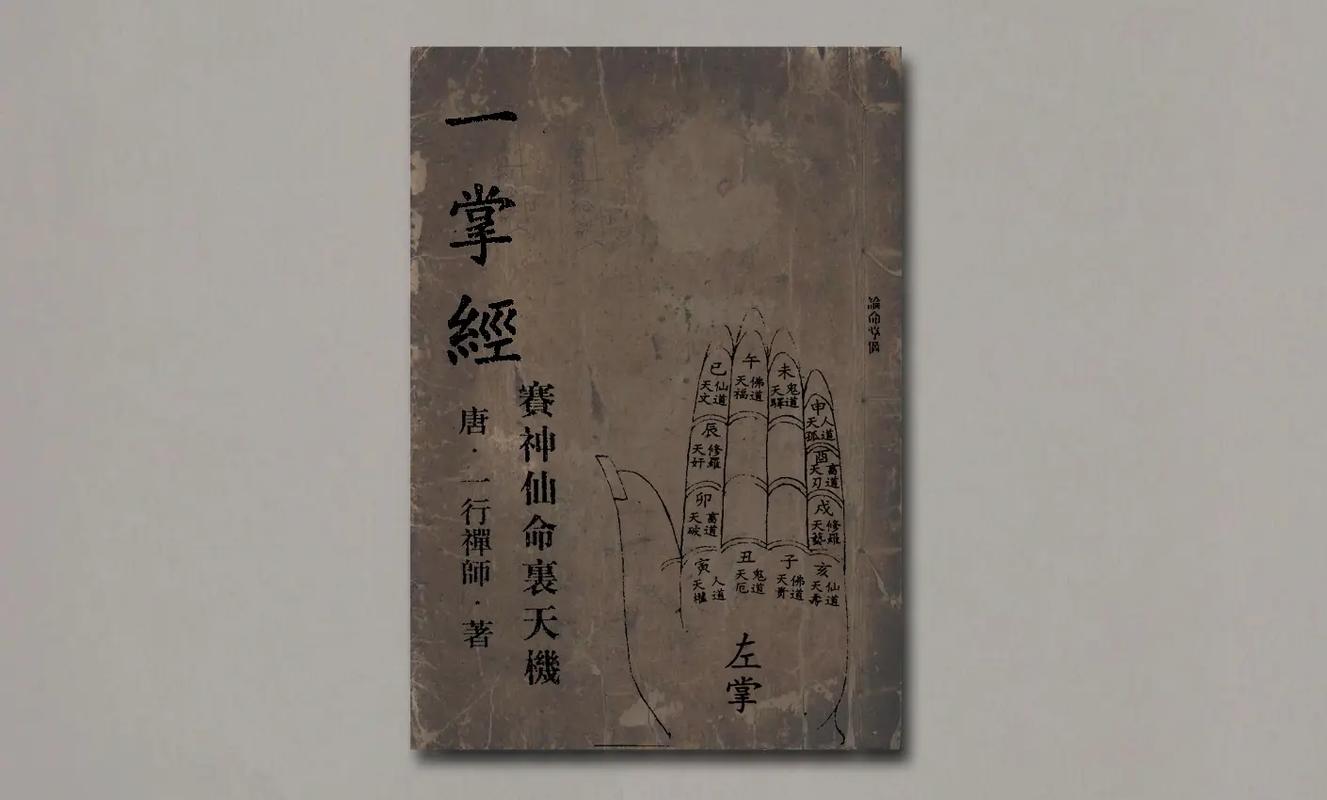 一掌經
賽神仙命裏天機
唐·一行禪師·著
巳
仙道
天文
午
佛道
天福
未
鬼道
天驛
申
人道
天孤
辰
修羅
天奸
酉
畜道
天刃
卯
畜道
天破
戌
修羅
天藝
寅
人道
天權
丑
鬼道
天厄
子
佛道
天貴
亥
仙道
天壽
左掌